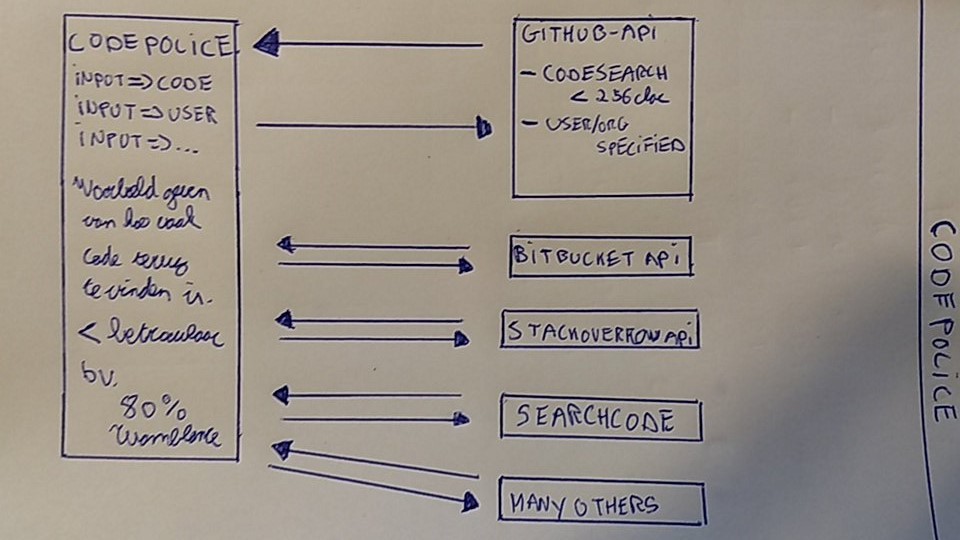 CODEPOLICE
INPUT=>CODE
INPUT=>USER
INPUT=>...
Voorbeeld geven
van hoe vaak
Code terug
te vinden is.
<
bv.
80%
GITHUB-API
- CODESEARCH
< 256
- USER/ORG
SPECIFIED
BITBUCKET API
STACKOVERFLOW API
SEARCHCODE
MANY OTHERS
CODEPOLICE